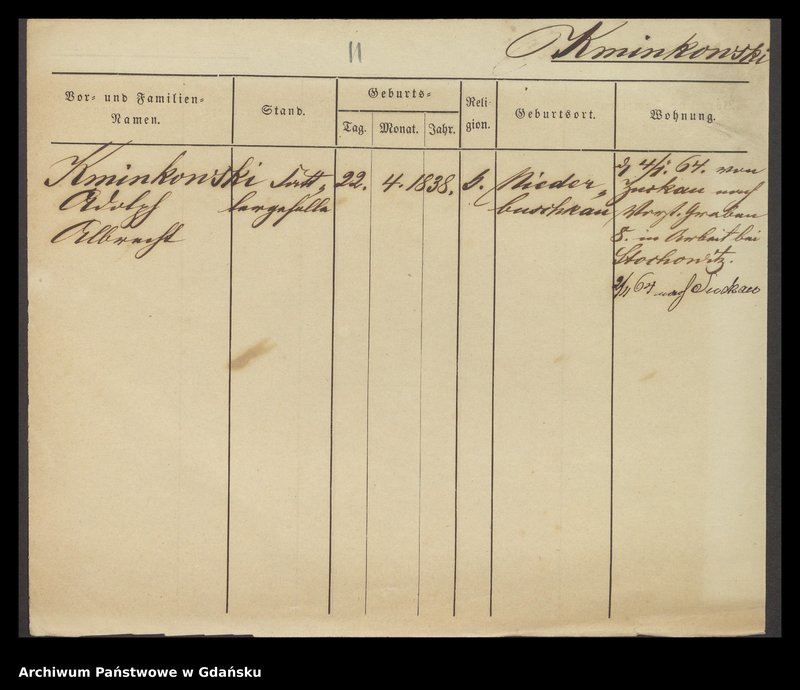 11
Kminkowski
Vor- und Familien-
Namen.
Stand.
Geburts-
Tag. Monat. Jahr.
Reli-
gion.
Geburtsort.
Wohnung.
Kminkowski
Adolph
Albrecht
Satt-
lergeselle
22. 4. 1838.
Nieder-
buschkau
64. von
Zuckau nach
Vorst. Graben
8. in Arbeit bei
Stochowitz.
2/11 64 nach Zuckau
Archiwum Państwowe w Gdańsku